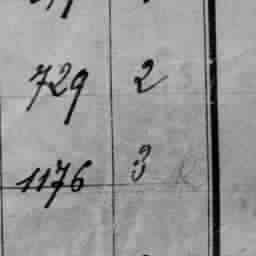 729 2
1176 3